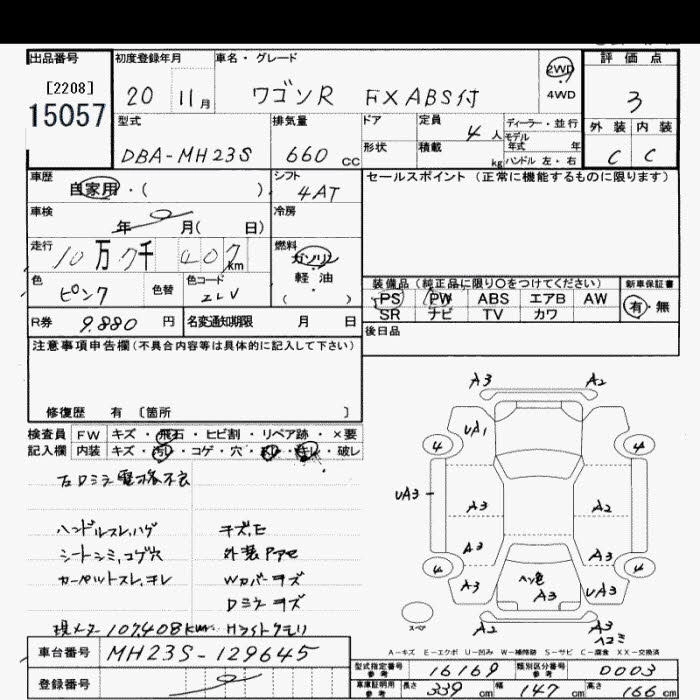 出品番号 初度登録年月 車名・グレード 2WD 評価点
[2208] 20 11月 ワゴンR FXABS付 4WD 3
15057
型式 排気量 ドア 定員 4人 ディーラー・並行 外装 内装
モデル年式 年
DBA-MH23S 660cc 形状 積載 kg ハンドル 左・右 C C
車歴 シフト セールスポイント(正常に機能するものに限ります)
自家用・( ) 4AT
車検 冷房
年 月( 日)
走行 燃料
10万7千407km ガソリン
軽・油
色 色替 色コード ( ) 装備品(純正品に限り○をつけてください) 新車保証書
ピンク ZLV PS PW ABS エアB AW 有・無
SR ナビ TV カワ
R券 9.880円 名変通知期限 月 日 後日品
注意事項申告欄(不具合内容等は具体的に記入して下さい)
修復歴 有 〔箇所 〕
検査員 FW キズ・飛石・ヒビ割・リペア跡・×要
記入欄 内装 キズ・汚レ・コゲ・穴・スレ・キレ・破レ
左ドミラ電格不良
ハンドルスレ,ハゲ キズ,E
シートシミ,コゲ穴 外装Pアセ
カーペットスレ,キレ Wカバーキズ
Dミラキズ
現メータ107,408km Hライトクモリ
A3 A2
UA1
4 4
UA3
A3 A2
A3 A3
4 4
A3 ヘン色 A3 UA3
スペア A2 A3
ヘコミ
A-キズ E-エクボ U-凹み W-補修跡 S-サビ C-腐食 XX-交換済
車台番号 MH23S-129645
型式指定番号 参考 16169 類別区分番号 参考 0003
登録番号
車庫証明用 参考 長さ 339cm 幅 147cm 高さ 166cm